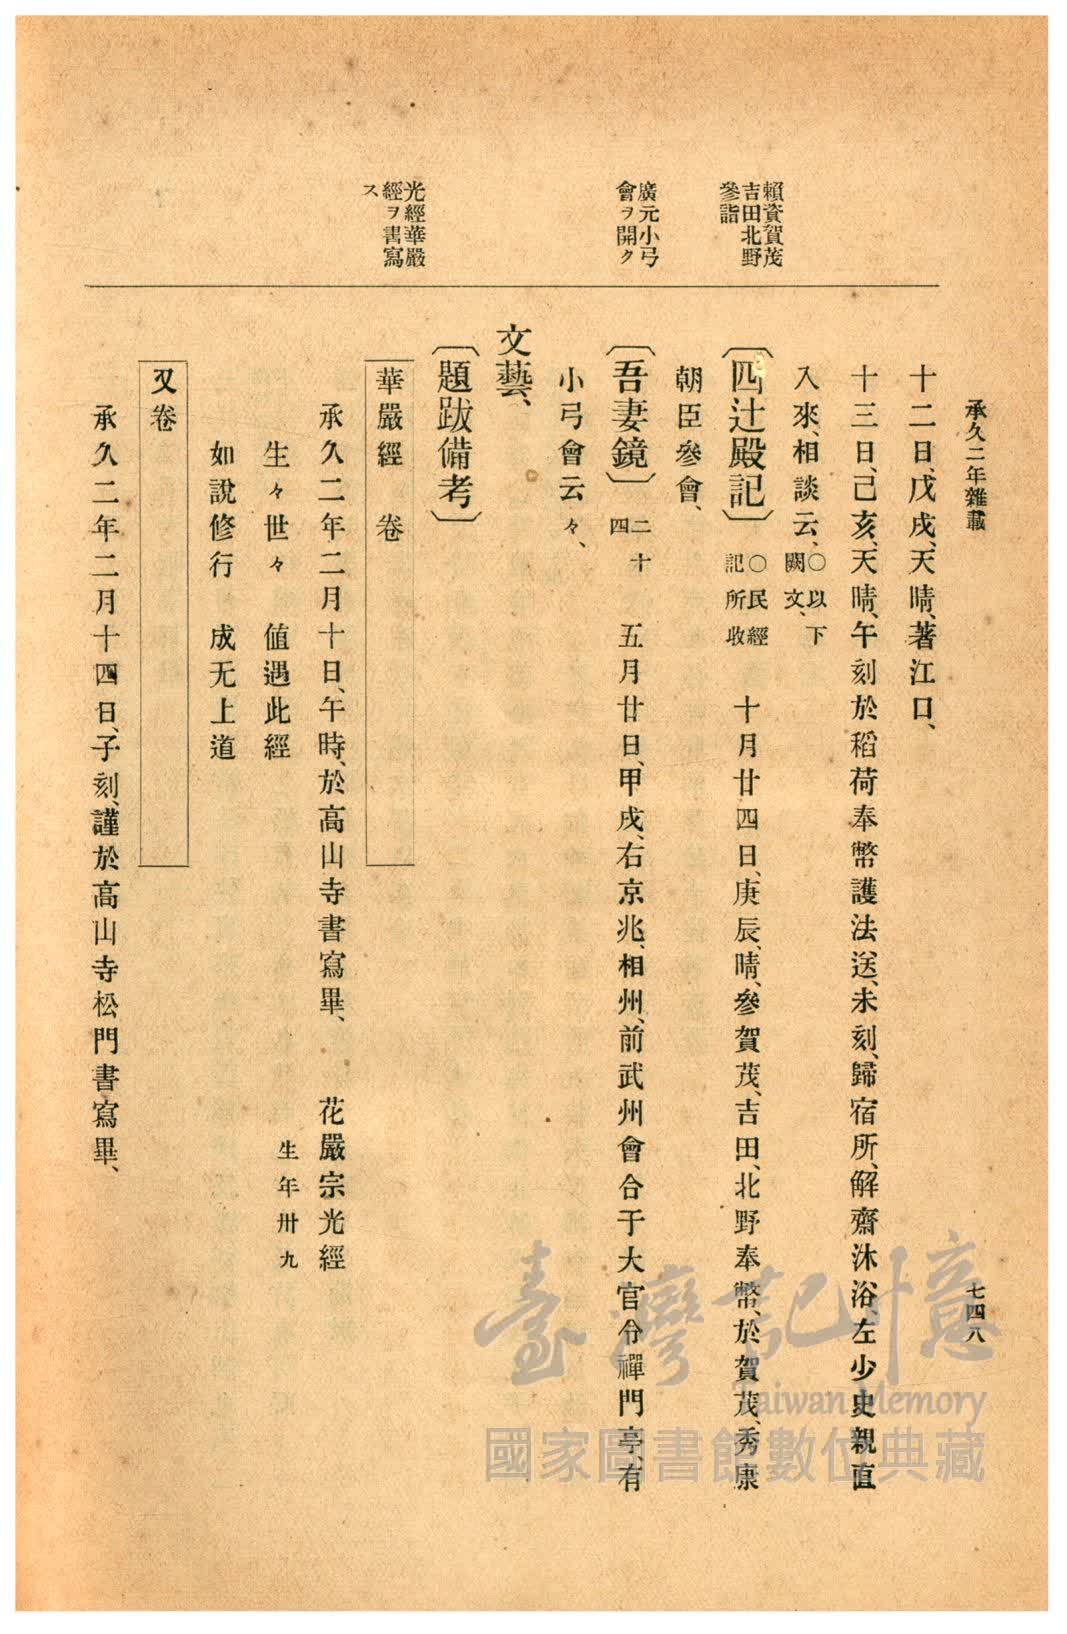 承久二年雜載
七四八
賴資賀茂
吉田北野
參詣
廣元小弓
會ヲ開ク
光經華嚴
經ヲ書寫
ス
十二日、戊戌、天晴、著江口、
十三日、己亥、天晴、午刻於稻荷奉幣護法送、未刻歸宿所、解齋沐浴、左少史親直
入來、相談云、○以下闕文、
〔四辻殿記〕○民經記所收 十月廿四日、庚辰、晴、參賀茂、吉田、北野奉幣、於賀茂、秀康
朝臣參會、
〔吾妻鏡〕二十四 五月廿日、甲戌、右京兆、相州、前武州會合于大官令禪門亭、有
小弓會云々、
文藝、
〔題跋備考〕
華嚴經 卷
承久二年二月十日、午時、於高山寺書寫畢、 花嚴宗光經
生々世々 値遇此經 生年卅九
如說修行 成无上道
又卷
承久二年二月十四日、子刻、謹於高山寺松門書寫畢、
臺灣記憶
Taiwan Memory
國家圖書館數位典藏